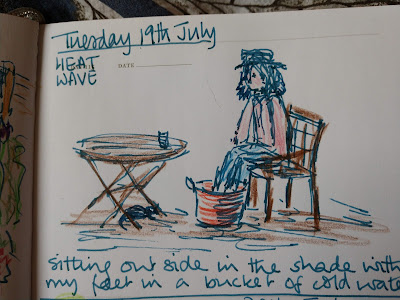 Tuesday 19th July
HEAT
DATE
WAVE
sitting out side in the shade with
my feet in a bucket of cold water